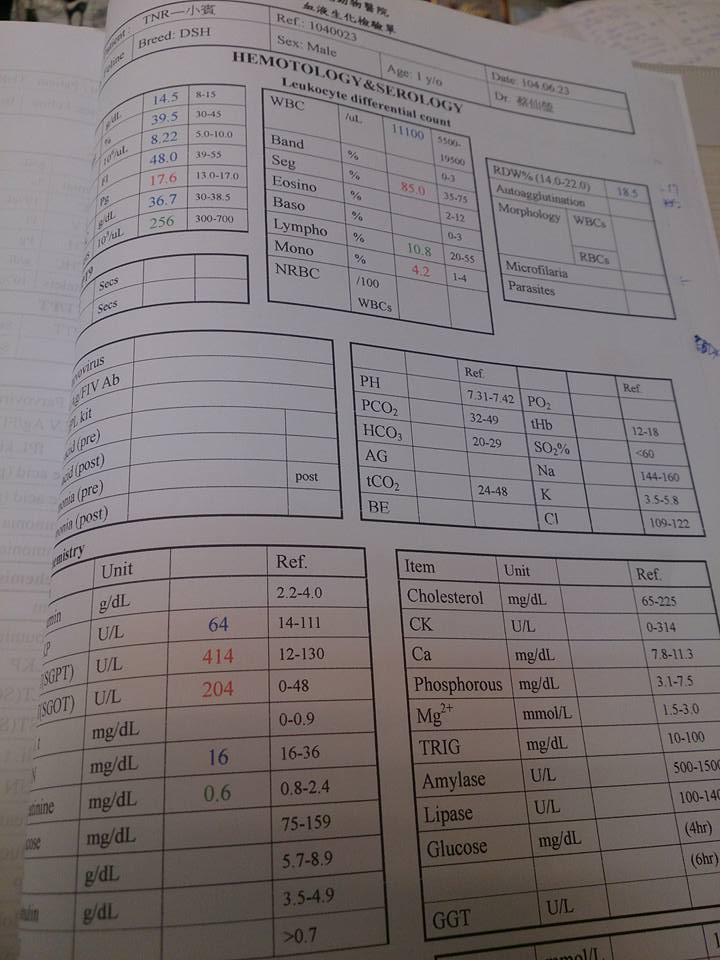 動物醫院
血液生化檢驗單
TNR—小賓 Ref.: 1040023 Date: 104.06.23
Feline Breed: DSH Sex: Male Age: 1 y/o Dr.
HEMOTOLOGY&SEROLOGY
Leukocyte differential count
g/dL 14.5 8-15
% 39.5 30-45
10⁶/uL 8.22 5.0-10.0
fl 48.0 39-55
Pg 17.6 13.0-17.0
g/dL 36.7 30-38.5
10³/uL 256 300-700
Secs
Secs
WBC /uL 11100 5500-19500
Band % 0-3
Seg % 85.0 35-75
Eosino % 2-12
Baso % 0-3
Lympho % 10.8 20-55
Mono % 4.2 1-4
NRBC /100 WBCs
RDW% (14.0-22.0) 18.5
Autoagglutination
Morphology WBCs
RBCs
Microfilaria
Parasites
FIV Ab
kit
(pre)
(post) post
(pre)
(post)
Ref. Ref.
PH 7.31-7.42 PO₂
PCO₂ 32-49 tHb 12-18
HCO₃ 20-29 SO₂% <60
AG Na 144-160
tCO₂ 24-48 K 3.5-5.8
BE Cl 109-122
Unit Ref.
g/dL 2.2-4.0
U/L 64 14-111
(SGPT) U/L 414 12-130
(SGOT) U/L 204 0-48
mg/dL 0-0.9
mg/dL 16 16-36
mg/dL 0.6 0.8-2.4
mg/dL 75-159
g/dL 5.7-8.9
g/dL 3.5-4.9
>0.7
Item Unit Ref.
Cholesterol mg/dL 65-225
CK U/L 0-314
Ca mg/dL 7.8-11.3
Phosphorous mg/dL 3.1-7.5
Mg²⁺ mmol/L 1.5-3.0
TRIG mg/dL 10-100
Amylase U/L 500-1500
Lipase U/L
Glucose mg/dL (4hr)
(6hr)
GGT U/L
mmol/L